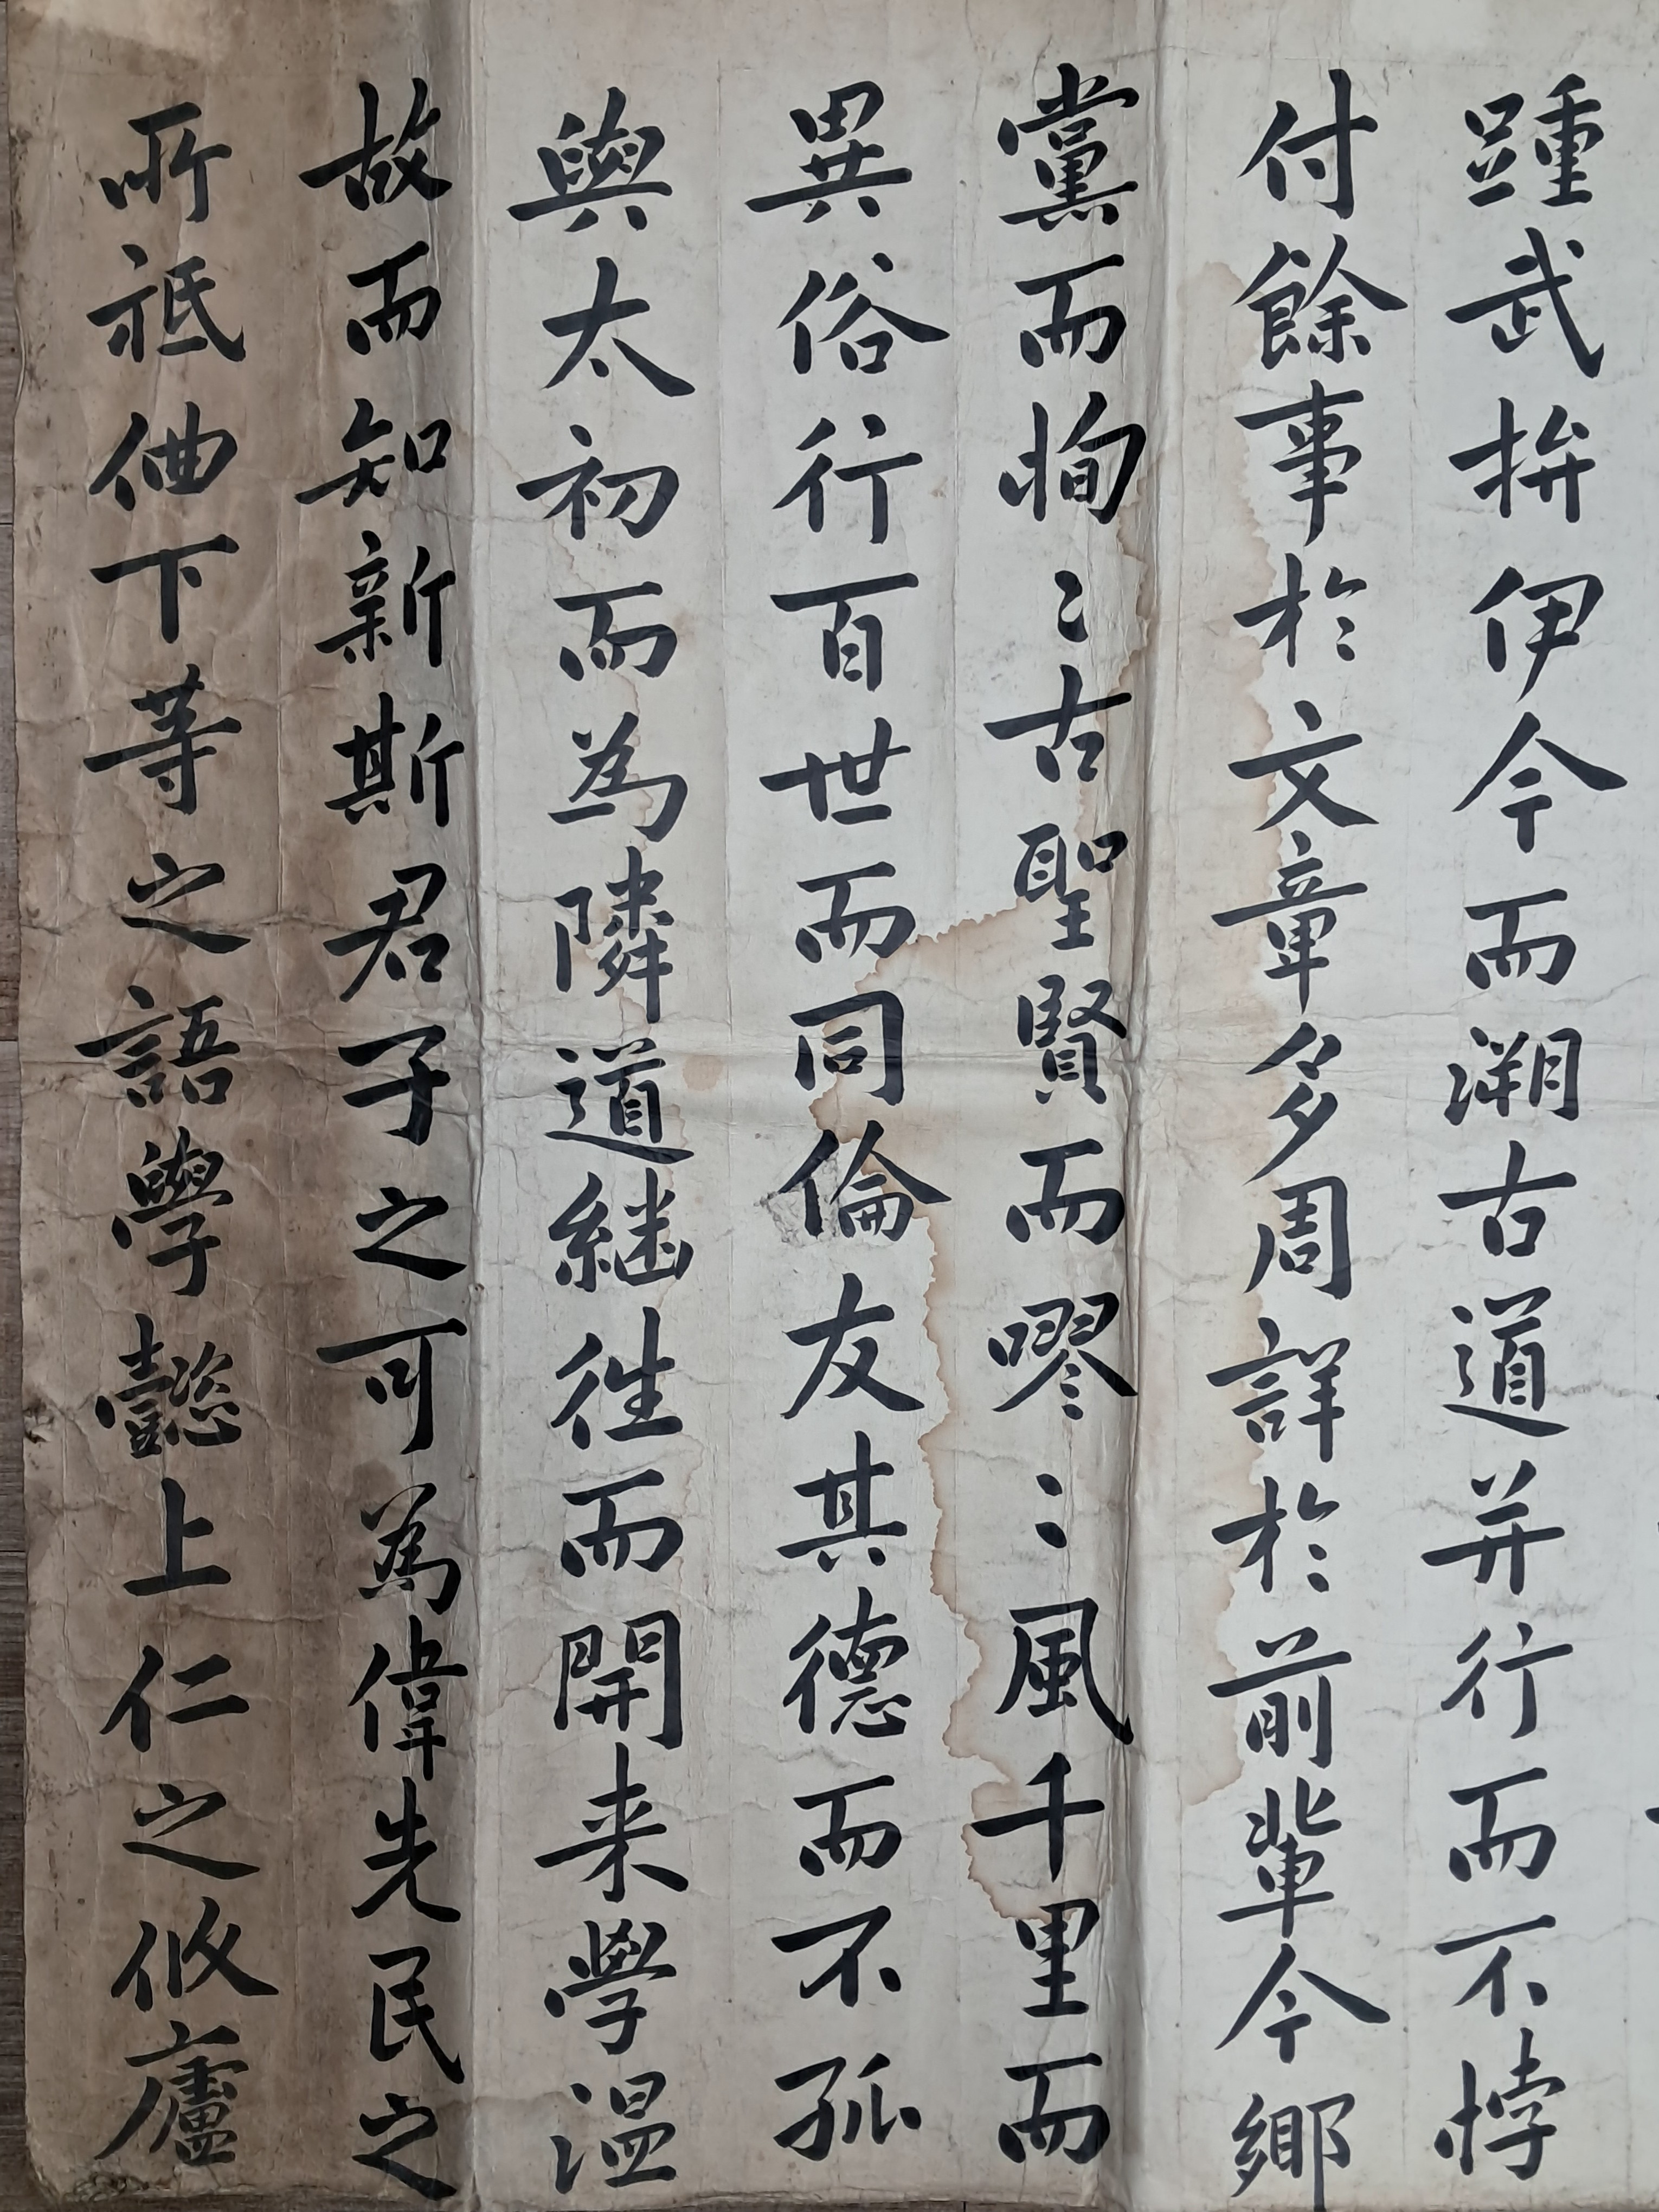 踵武拚伊今而溯古道并行而不悖
付餘事於文章多周詳於前輩今鄉
黨而恂〻古聖賢而嘐〻風千里而
異俗行百世而同倫友其德而不孤
與太初而為隣道継徃而開来學温
故而知新斯君子之可為偉先民之
所祗佃下等之語學懿上仁之攸廬